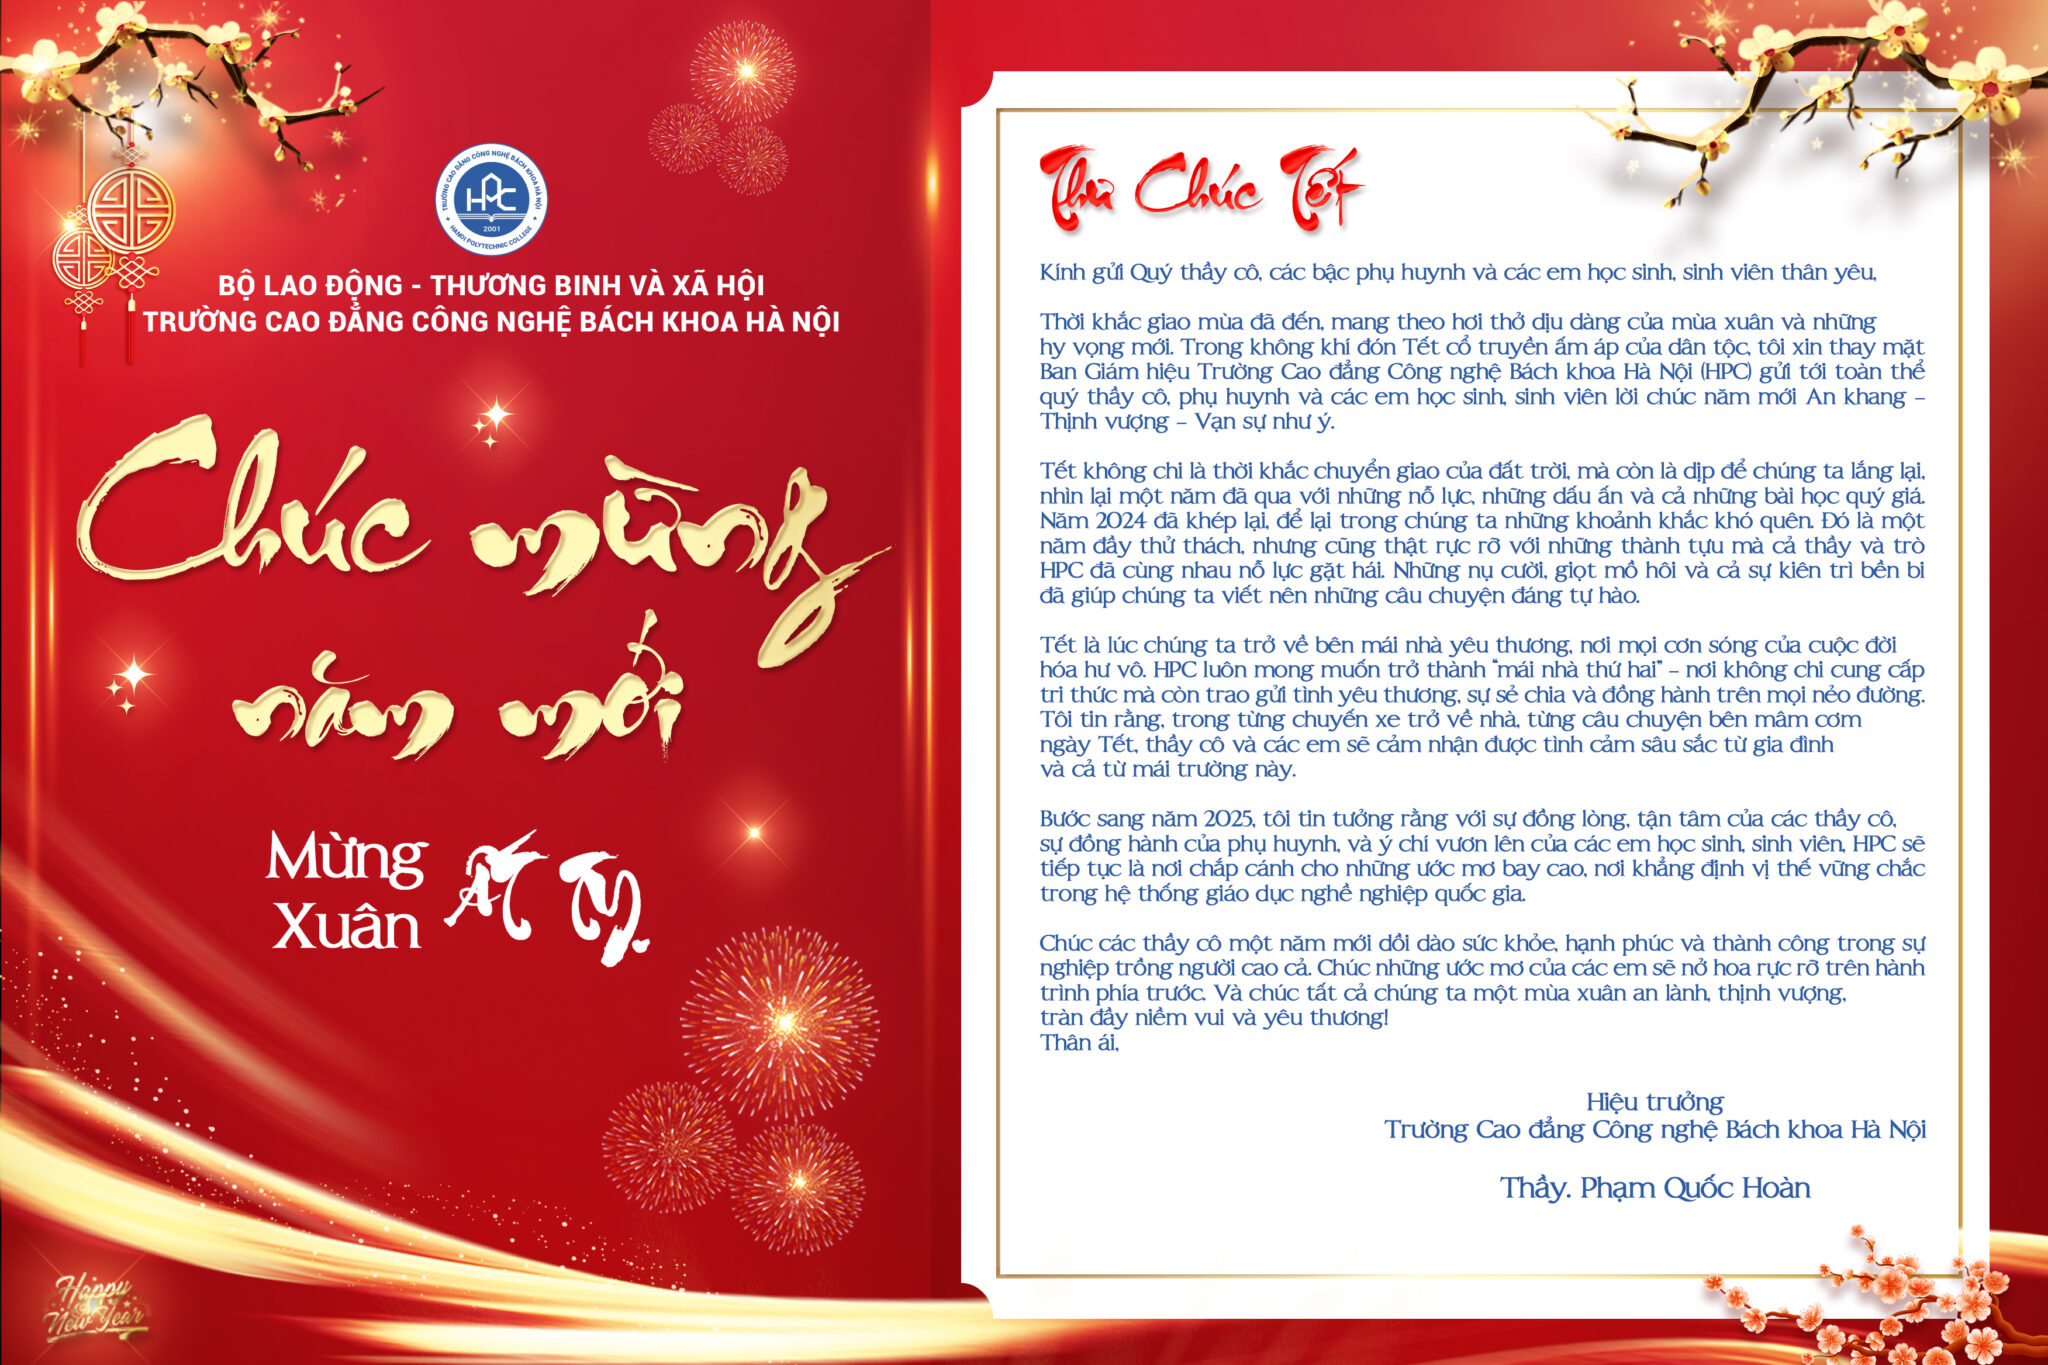 TRƯỜNG CAO ĐẲNG CÔNG NGHỆ BÁCH KHOA HÀ NỘI
HPC
2001
HANOI POLYTECHNIC COLLEGE
BỘ LAO ĐỘNG - THƯƠNG BINH VÀ XÃ HỘI
TRƯỜNG CAO ĐẲNG CÔNG NGHỆ BÁCH KHOA HÀ NỘI
Chúc mừng
năm mới
Mừng
Xuân
ẤT TỴ
Happy
New Year
Thư Chúc Tết
Kính gửi Quý thầy cô, các bậc phụ huynh và các em học sinh, sinh viên thân yêu,
Thời khắc giao mùa đã đến, mang theo hơi thở dịu dàng của mùa xuân và những
hy vọng mới. Trong không khí đón Tết cổ truyền ấm áp của dân tộc, tôi xin thay mặt
Ban Giám hiệu Trường Cao đẳng Công nghệ Bách khoa Hà Nội (HPC) gửi tới toàn thể
quý thầy cô, phụ huynh và các em học sinh, sinh viên lời chúc năm mới An khang –
Thịnh vượng – Vạn sự như ý.
Tết không chỉ là thời khắc chuyển giao của đất trời, mà còn là dịp để chúng ta lắng lại,
nhìn lại một năm đã qua với những nỗ lực, những dấu ấn và cả những bài học quý giá.
Năm 2024 đã khép lại, để lại trong chúng ta những khoảnh khắc khó quên. Đó là một
năm đầy thử thách, nhưng cũng thật rực rỡ với những thành tựu mà cả thầy và trò
HPC đã cùng nhau nỗ lực gặt hái. Những nụ cười, giọt mồ hôi và cả sự kiên trì bền bỉ
đã giúp chúng ta viết nên những câu chuyện đáng tự hào.
Tết là lúc chúng ta trở về bên mái nhà yêu thương, nơi mọi cơn sóng của cuộc đời
hóa hư vô. HPC luôn mong muốn trở thành "mái nhà thứ hai" – nơi không chỉ cung cấp
tri thức mà còn trao gửi tình yêu thương, sự sẻ chia và đồng hành trên mọi nẻo đường.
Tôi tin rằng, trong từng chuyến xe trở về nhà, từng câu chuyện bên mâm cơm
ngày Tết, thầy cô và các em sẽ cảm nhận được tình cảm sâu sắc từ gia đình
và cả từ mái trường này.
Bước sang năm 2025, tôi tin tưởng rằng với sự đồng lòng, tận tâm của các thầy cô,
sự đồng hành của phụ huynh, và ý chí vươn lên của các em học sinh, sinh viên, HPC sẽ
tiếp tục là nơi chắp cánh cho những ước mơ bay cao, nơi khẳng định vị thế vững chắc
trong hệ thống giáo dục nghề nghiệp quốc gia.
Chúc các thầy cô một năm mới dồi dào sức khỏe, hạnh phúc và thành công trong sự
nghiệp trồng người cao cả. Chúc những ước mơ của các em sẽ nở hoa rực rỡ trên hành
trình phía trước. Và chúc tất cả chúng ta một mùa xuân an lành, thịnh vượng,
tràn đầy niềm vui và yêu thương!
Thân ái,
Hiệu trưởng
Trường Cao đẳng Công nghệ Bách khoa Hà Nội
Thầy. Phạm Quốc Hoàn